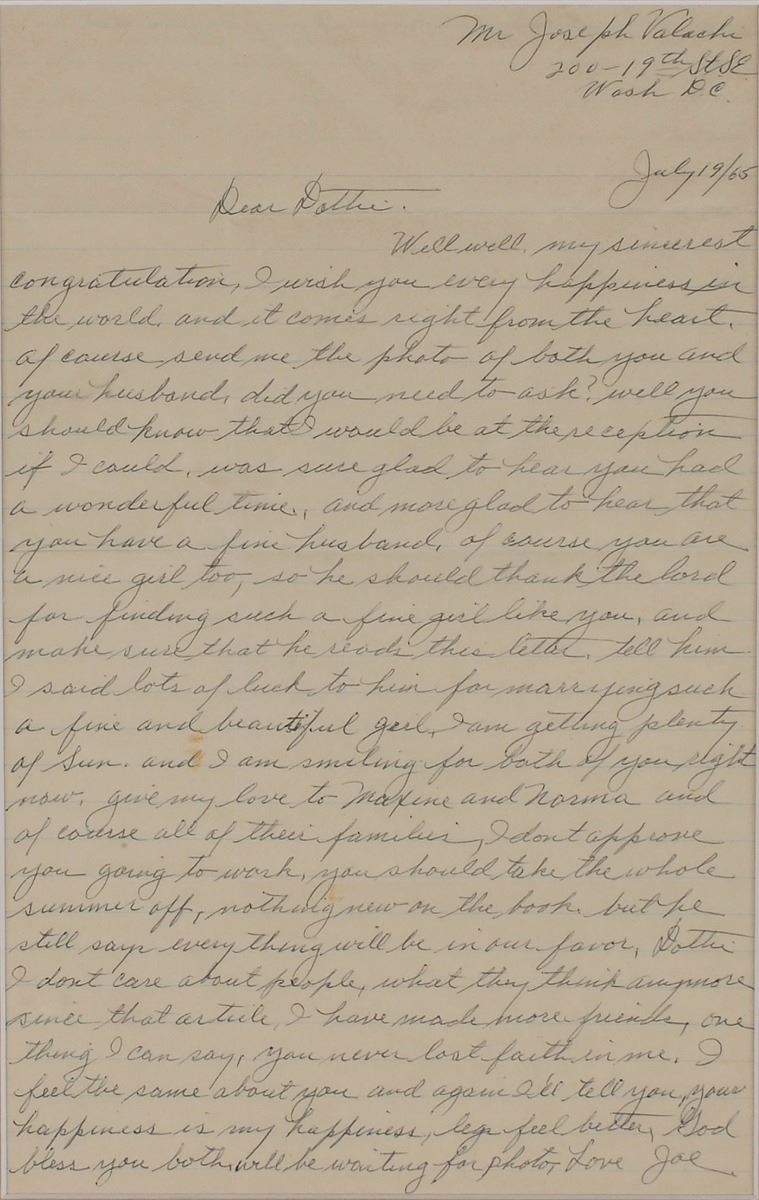 Mr Joseph Valachi
200-19th St SE
Wash D.C.
July 19/65
Dear Dottie.
Well well. my sincerest
congratulation, I wish you every happiness in
the world. and it comes right from the heart.
of course send me the photo of both you and
your husband, did you need to ask? well you
should know that I would be at the reception
if I could. was sure glad to hear you had
a wonderful time., and more glad to hear that
you have a fine husband, of course you are
a nice girl too, so he should thank the lord
for finding such a fine girl like you, and
make sure that he reads this letter. tell him
I said lots of luck to him for marrying such
a fine and beautiful girl, I am getting plenty
of sun. and I am smiling for both of you right
now. give my love to Maxine and Norma and
of course all of their families, I dont approve
you going to work, you should take the whole
summer off, nothing new on the book. but he
still says everything will be in our favor, Dottie
I dont care about people, what they think anymore
since that article, I have made more friends, one
thing I can say, you never lost faith in me. I
feel the same about you and again I'll tell you, your
happiness is my happiness, legs feel better, God
bless you both, will be waiting for photo, Love Joe